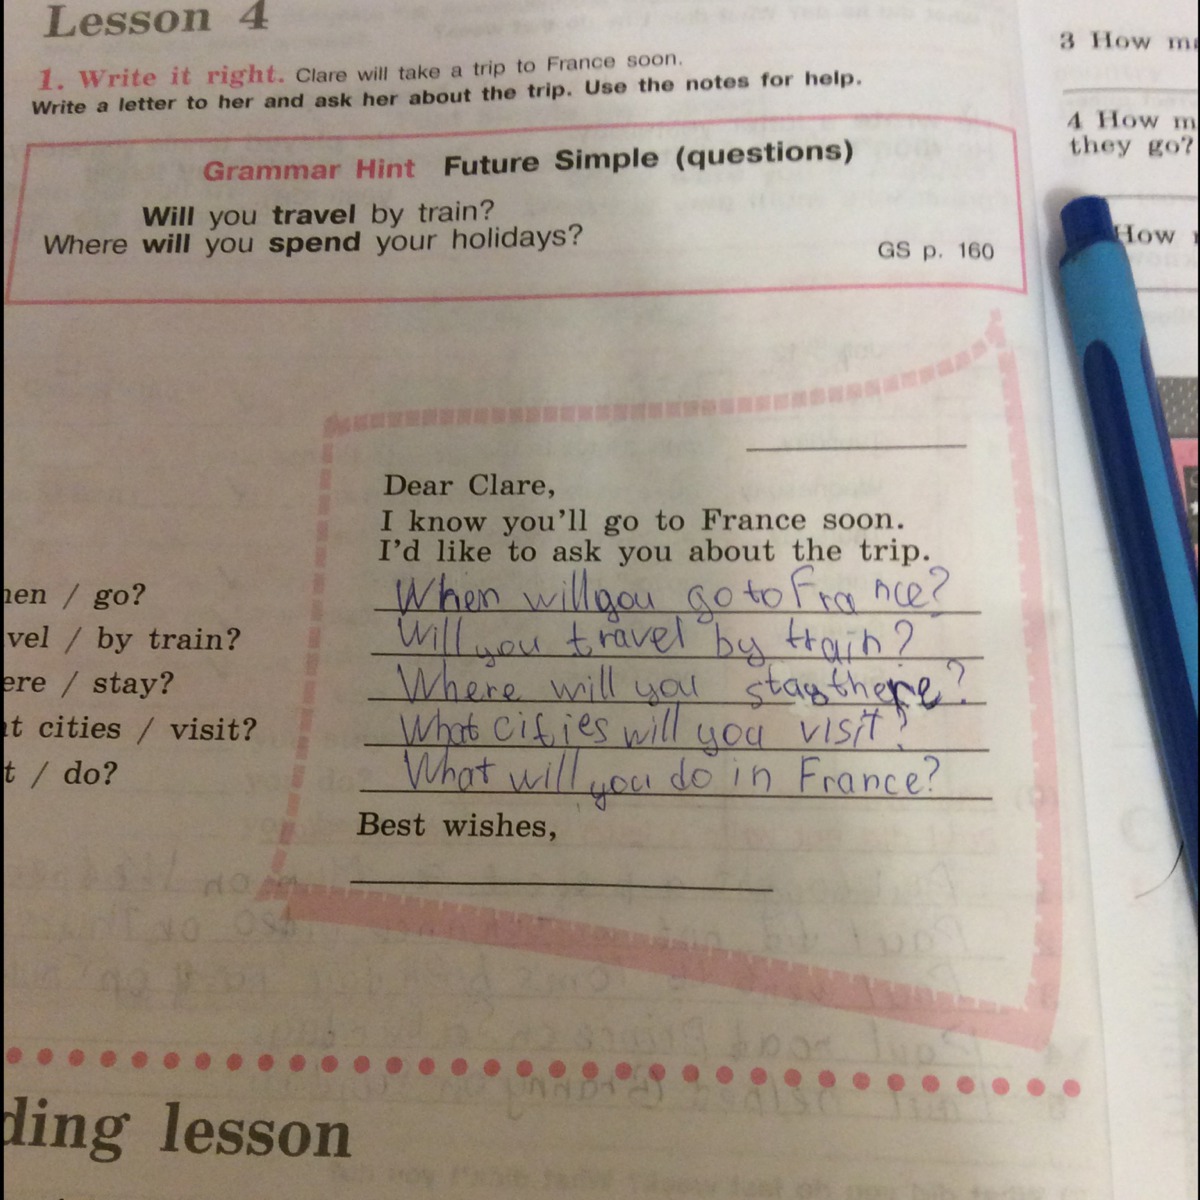 Lesson 4
1. Write it right. Clare will take a trip to France soon.
Write a letter to her and ask her about the trip. Use the notes for help.
Grammar Hint Future Simple (questions)
Will you travel by train?
Where will you spend your holidays?
GS p. 160
Dear Clare,
I know you'll go to France soon.
I'd like to ask you about the trip.
hen / go?
When will you go to France?
vel / by train?
Will you travel by train?
ere / stay?
Where will you stay there?
t cities / visit?
What cities will you visit?
t / do?
What will you do in France?
Best wishes,
ding lesson
3 How m
4 How m
they go?
How